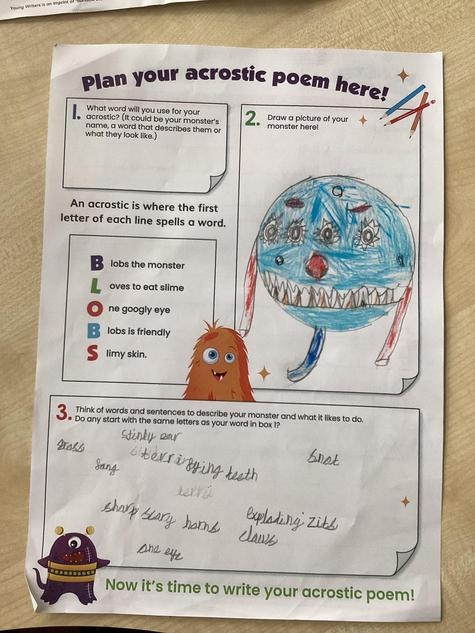 Young Writers is an imprint of
Plan your acrostic poem here!
1. What word will you use for your
acrostic? (It could be your monster's
name, a word that describes them or
what they look like.)
2. Draw a picture of your
monster here!
An acrostic is where the first
letter of each line spells a word.
B lobs the monster
L oves to eat slime
O ne googly eye
B lobs is friendly
S limy skin.
3. Think of words and sentences to describe your monster and what it likes to do.
Do any start with the same letters as your word in box 1?
Stinky ear
terrifying teeth
Snot
fang
sharp scary horns
exploding zits
claws
one eye
Now it's time to write your acrostic poem!